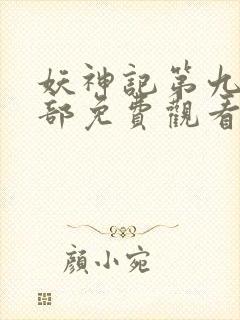 妖神記第九
部免費觀看
顏小宛